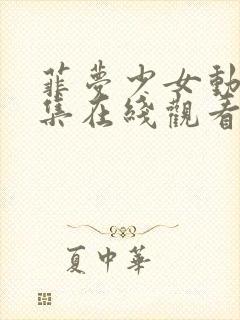 韮夢少女動
集在綫觀看
夏中華